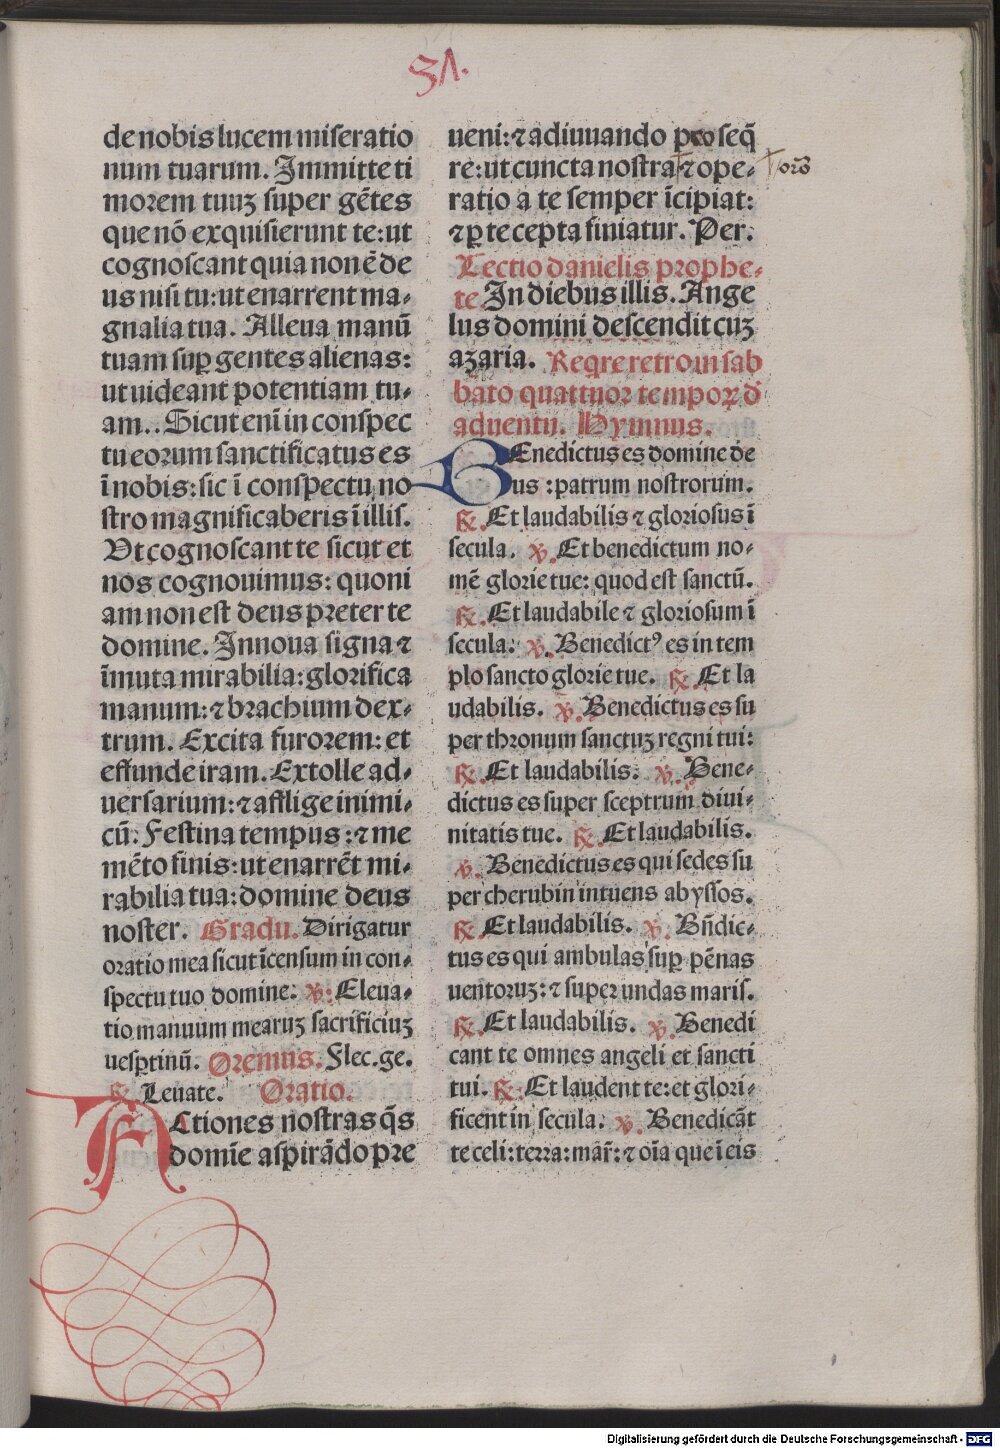 51.
de nobis lucem miseratio
num tuarum. Immitte ti
morem tuuʒ super gētes
que nō exquisierunt te: ut
cognoscant quia non ē de
us nisi tu: ut enarrent ma-
gnalia tua. Alleua manū
tuam sup̄ gentes alienas:
ut uideant potentiam tu-
am.. Sicut eni̅ in conspec
tu eorum sanctificatus es
ī nobis: sic ī conspectu no
stro magnificaberis ī illis.
Ut cognoscant te sicut et
nos cognouimus: quoni
am non est deus preter te
domine. Innoua signa ⁊
īmuta mirabilia: glorifica
manum: ⁊ brachium dex-
trum. Excita furorem: et
effunde iram. Extolle ad-
uersarium: ⁊ afflige inimi-
cū: Festina tempus: ⁊ me
mēto finis: ut enarrēt mi-
rabilia tua: domine deus
noster. Gradu. Dirigatur
oratio mea sicut īcensum in con-
spectu tuo domine: ℣: Eleua-
tio manuum mearuʒ sacrificiuʒ
uesꝑtinū. Oremus. Flec.ge.
℟. Leuate. Oratio.
Actiones nostras q̄s
domīe aspirādo pre
ueni: ⁊ adiuuando proseq̄
re: ut cuncta nostra ⁊ ope-
oro̅
ratio a te semper īcipiat:
⁊ ꝑ te cepta finiatur. Per.
Lectio danielis prophe-
te. In diebus illis. Ange
lus domini descendit cuʒ
aʒaria. Reqre retro in sab
bato quattuor tempoꝝ d̄
aduentu. Hymnus.
Benedictus es domine de
us: patrum nostrorum.
℟. Et laudabilis ⁊ gloriosus ī
secula. ℣. Et benedictum no-
mē glorie tue: quod est sanctū.
℟. Et laudabile ⁊ gloriosum ī
secula: ℣. Benedictꝰ es in tem
plo sancto glorie tue. ℟. Et la
udabilis. ℣. Benedictus es su
per thronum sanctuʒ regni tui:
℟. Et laudabilis. ℣. Bene-
dictus es super sceptrum diui-
nitatis tue. ℟. Et laudabilis.
℣. Benedictus es qui sedes su
per cherubin intuens abyssos.
℟. Et laudabilis. ℣. Bn̄dic-
tus es qui ambulas sup̄ pēnas
uentoruʒ: ⁊ super undas maris.
℟. Et laudabilis. ℣. Benedi
cant te omnes angeli et sancti
tui. ℟. Et laudent te: et glori-
ficent in secula. ℣. Benedicāt
te celi: terra: mar̄: ⁊ oīa que ī eis
Digitalisierung gefördert durch die Deutsche Forschungsgemeinschaft - DFG